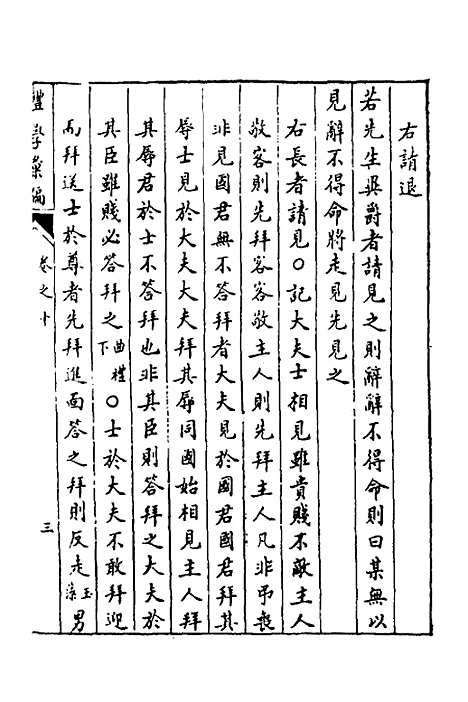 右請退
若先生異爵者請見之則辭辭不得命則曰某無以
見辭不得命將走見先見之
右長者請見○記大夫士相見雖貴賤不敵主人
敬客則先拜客客敬主人則先拜主人凡非弔喪
非見國君無不答拜者大夫見於國君國君拜其
辱士見於大夫大夫拜其辱同國始相見主人拜
其辱君於士不答拜也非其臣則答拜之大夫於
其臣雖賤必答拜之曲禮下○士於大夫不敢拜迎
而拜送士於尊者先拜進面答之拜則反走玉藻男
禮學彙編
卷之十
三